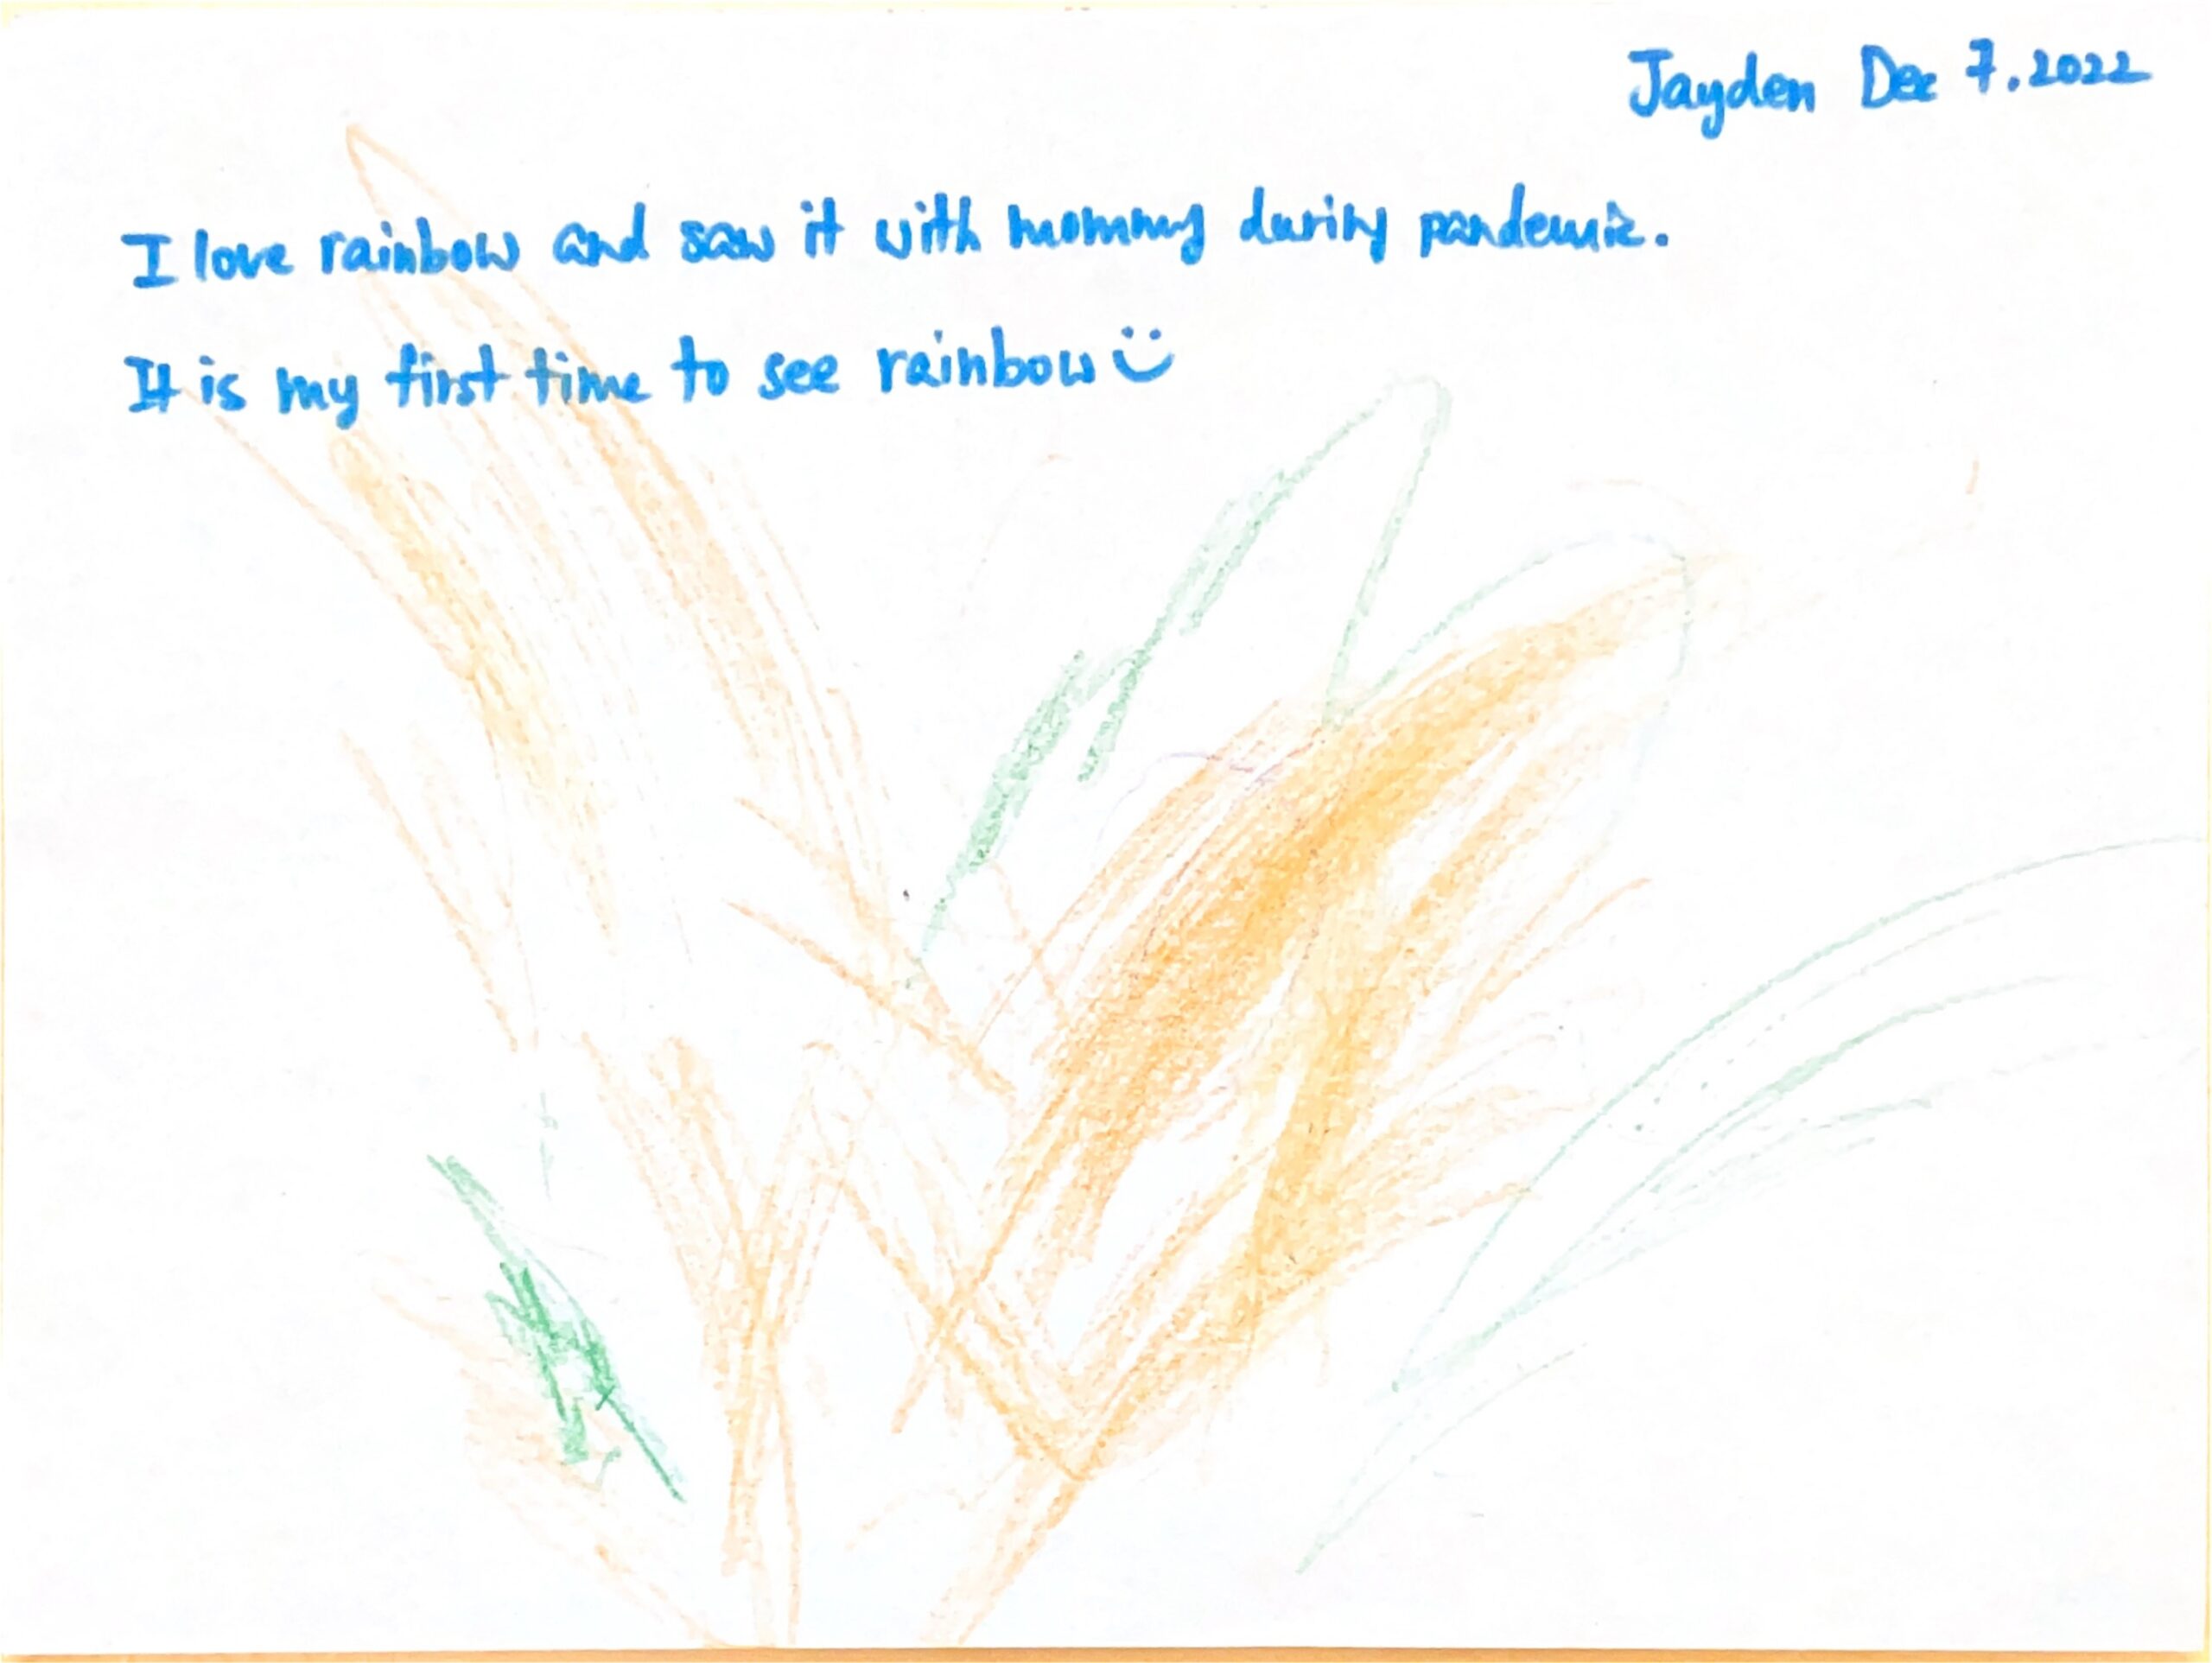 Jayden Dec 7.2022
I love rainbow and saw it with mommy during pandemic.
It is my first time to see rainbow